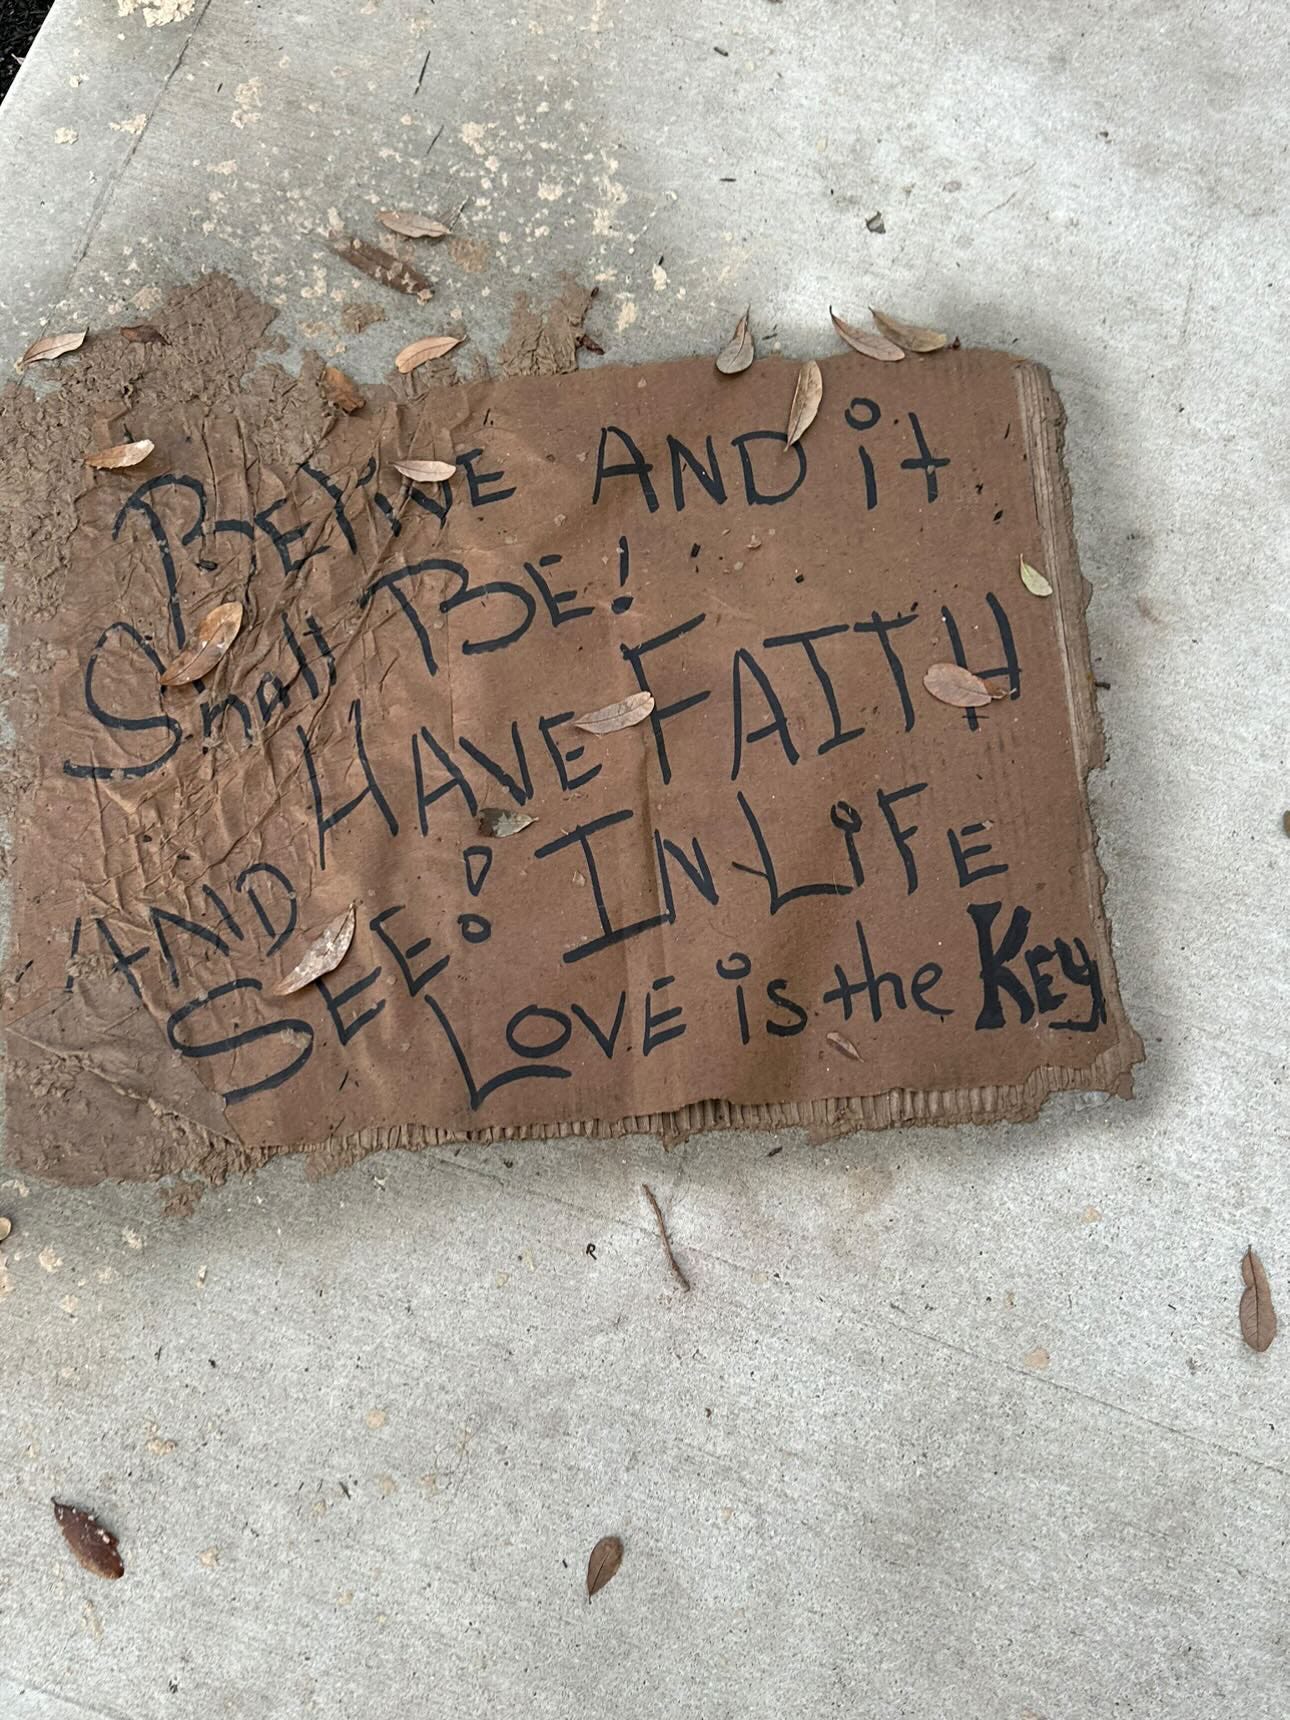 BELIVE AND it
Shall BE!
HAVE FAITH
AND
SEE! IN LiFE
LOVE is the KEy